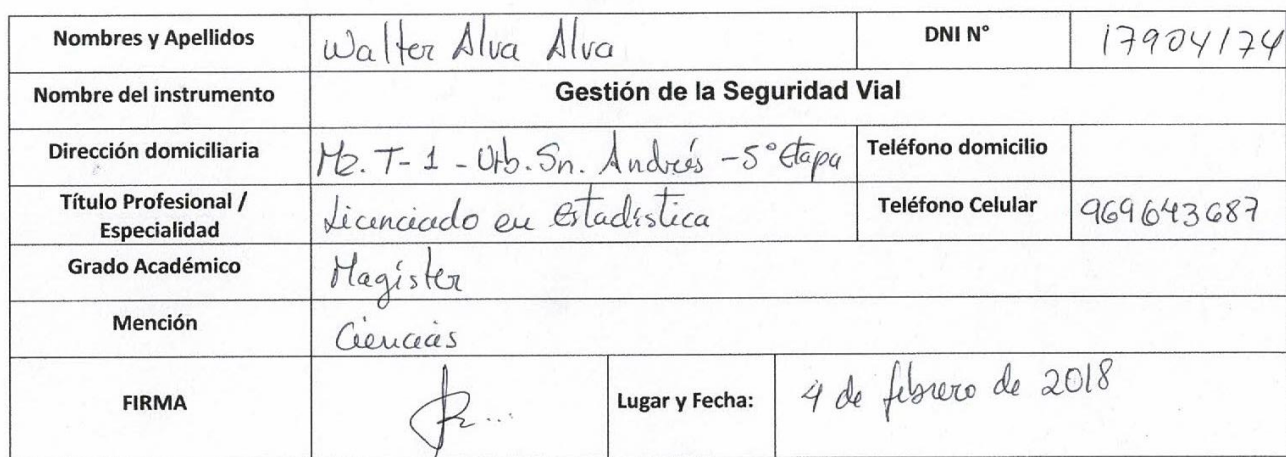 Nombres y Apellidos Walter Alva Alva DNI N° 17904174
Nombre del instrumento Gestión de la Seguridad Vial
Dirección domiciliaria Mz. T-1 - Urb. Sn. Andrés - 5° Etapa Teléfono domicilio
Título Profesional / Especialidad Licenciado en Estadística Teléfono Celular 969643687
Grado Académico Magíster
Mención Ciencias
FIRMA Lugar y Fecha: 4 de febrero de 2018